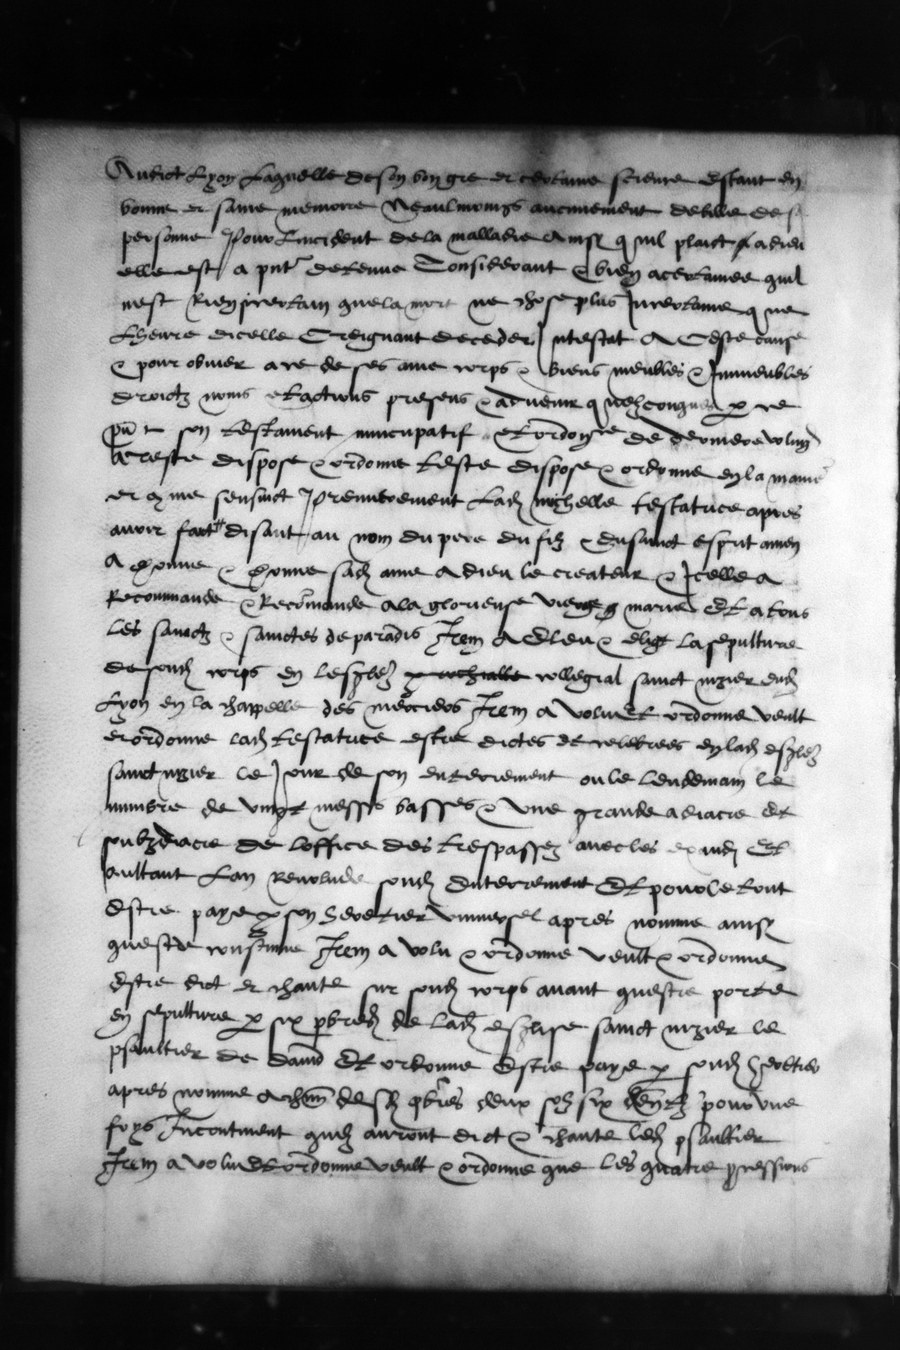 Audict Lyon Laquelle de son bon gre et certaine science estant en
bonne et saine memoire Neaulmoings aucunement debille de sa
personne Pour Lincident de la malladie Ainsi quil plaict a dieu
elle est a pnt detenue Considerant & bien acertainee quil
nest Rien si certain que la mort ne chose plus Incertaine que
Lheure dicelle Creignant deceder Intestat A Ceste cause
& pour obvier a ce de ses ame corps & biens meubles & Immeubles
droictz noms et actions presens & advenir quelzconques p ce
pnt son testament nuncupatif et ordonnce de derniere volunte
A teste dispose & ordonne teste dispose & ordonne en la manie
et forme sensuict Premierement Lad michelle testatrice apres
avoir faict # disant au nom du pere du filz & du sainct esprit amen
A donne & donne sad ame a dieu le createur & Icelle a
Recommande & Recommande a la glorieuse vierge marie Et a tous
les sainctz & sainctes de paradis Item A Esleu & eslit la sepulture
de sond corps en leglez collegial sainct nizier dud
Lyon en la chappelle des merciers Item a volu et ordonne veult
et ordonne lad testatrice estre dictes et celebrees en lad eglez
sainct nizier le Jour de son enterrement ou le lendemain le
numbre de vingt messes basses & une grande a diacre et
soubzdiacre de loffice des trespassez avec les Et
aultant Lan Revolu de sond Enterrement Et pour ce tout
Estre paye p son heretier universel apres nomme ainsi
quest de coustume Item a volu & ordonne veult & ordonne
Estre dict et chante sur sond corps avant questre porte
en sepulture p six pbres de lad esglise sainct nizier le
psaultier de david Et ordonne Estre paye p sond heretier
apres nomme a chun desd pbres deux solz six den tz pour une
foys Incontinent quilz auront dict & chante led psaultier
Item a volu et ordonne veult & ordonne que les quatre processions